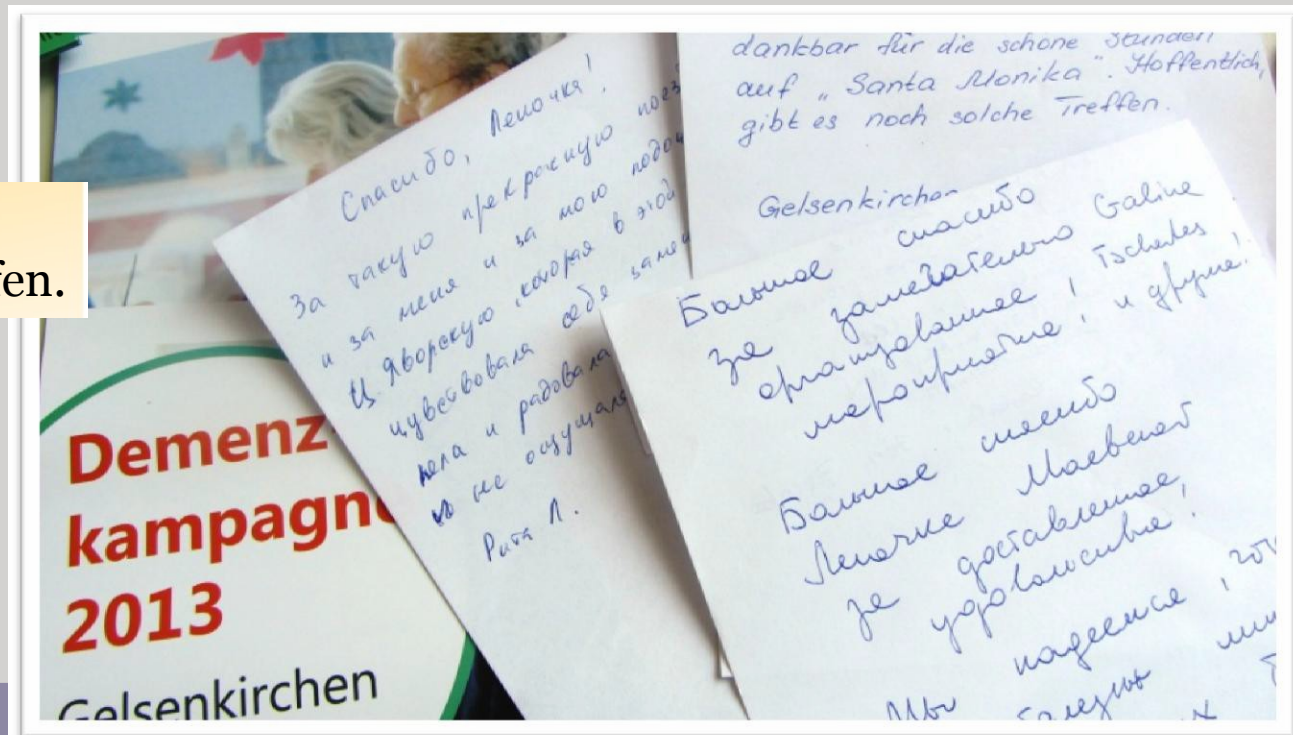 fen.
Demenz
kampagne
2013
Gelsenkirchen
Спасибо, Леночка!
За такую прекрасную поез
и за меня и за мою подру
Ц. Яворскую, которая в этой
чувствовала себя заме
пела и радовала
не ощущала
Рита Л.
dankbar für die schöne Stunden
auf „Santa Monika". Hoffentlich,
gibt es noch solche Treffen.
Gelsenkirchen
Большое спасибо
за замечательно Galine
организованное Tscherkes
мероприятие! и другие!
Большое спасибо
Леночке Маевской
за доставленное
удовольствие!
Мы надеемся, что